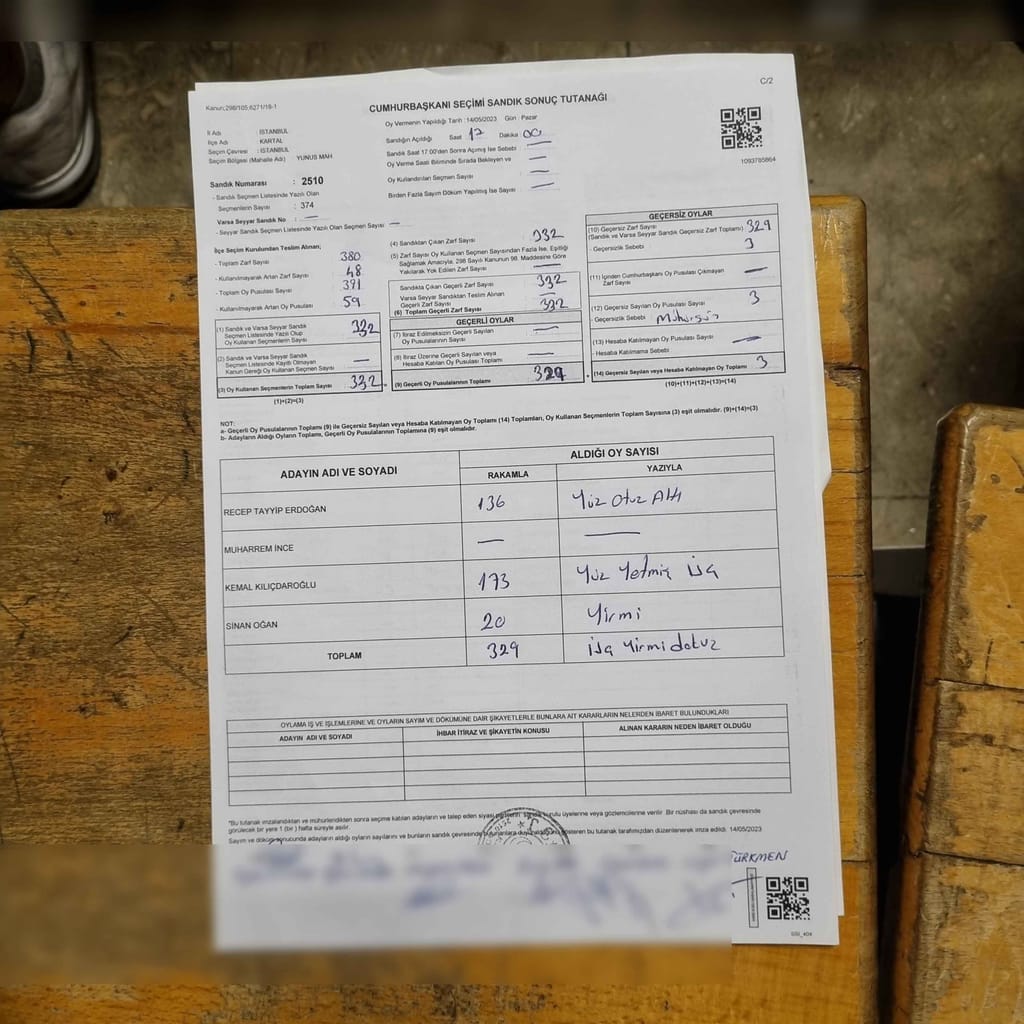 C/2
Kanun;298/105;6271/18-1
CUMHURBAŞKANI SEÇİMİ SANDIK SONUÇ TUTANAĞI
İl Adı : İSTANBUL
İlçe Adı : KARTAL
Seçim Çevresi : İSTANBUL
Seçim Bölgesi (Mahalle Adı) YUNUS MAH
Sandık Numarası : 2510
- Sandık Seçmen Listesinde Yazılı Olan
Seçmenlerin Sayısı : 374
Varsa Seyyar Sandık No : —
- Seyyar Sandık Seçmen Listesinde Yazılı Olan Seçmen Sayısı —
Oy Vermenin Yapıldığı Tarih :14/05/2023 Gün : Pazar
Sandığın Açıldığı Saat 17 Dakika 00
Sandık Saat 17:00'den Sonra Açımış İse Sebebi : —
Oy Verme Saati Bitiminde Sırada Bekleyen ve —
Oy Kullandırılan Seçmen Sayısı —
Birden Fazla Sayım Döküm Yapılmış İse Sayısı : —
1093785864
İlçe Seçim Kurulundan Teslim Alınan;
- Toplam Zarf Sayısı 380
- Kullanılmayarak Artan Zarf Sayısı 48
- Toplam Oy Pusulası Sayısı 391
- Kullanılmayarak Artan Oy Pusulası 59
(1) Sandık ve Varsa Seyyar Sandık
Seçmen Listesinde Yazılı Olup
Oy Kullanan Seçmenlerin Sayısı 332
(2) Sandık ve Varsa Seyyar Sandık
Seçmen Listesinde Kaydı Olmayan
Kanun Gereği Oy Kullanan Seçmen Sayısı —
(3) Oy Kullanan Seçmenlerin Toplam Sayısı 332
(1)+(2)=(3)
(4) Sandıktan Çıkan Zarf Sayısı 332
(5) Zarf Sayısı Oy Kullanan Seçmen Sayısından Fazla ise, Eşitliği
Sağlamak Amacıyla, 298 Sayılı Kanunun 98. Maddesine Göre
Yakılarak Yok Edilen Zarf Sayısı —
Sandıkta Çıkan Geçerli Zarf Sayısı 332
Varsa Seyyar Sandıktan Teslim Alınan
Geçerli Zarf Sayısı —
(6) Toplam Geçerli Zarf Sayısı 332
GEÇERLİ OYLAR
(7) İtiraz Edilmeksizin Geçerli Sayılan
Oy Pusulalarının Sayısı —
(8) İtiraz Üzerine Geçerli Sayılan veya
Hesaba Katılan Oy Pusulası Toplamı —
(9) Geçerli Oy Pusulalarının Toplamı 329
GEÇERSİZ OYLAR
(10) Geçersiz Zarf Sayısı
(Sandık ve Varsa Seyyar Sandık Geçersiz Zarf Toplamı) 329
- Geçersizlik Sebebi 3
(11) İçinden Cumhurbaşkanı Oy Pusulası Çıkmayan
Zarf Sayısı —
(12) Geçersiz Sayılan Oy Pusulası Sayısı 3
- Geçersizlik Sebebi
(13) Hesaba Katılmayan Oy Pusulası Sayısı —
- Hesaba Katılmama Sebebi
(14) Geçersiz Sayılan veya Hesaba Katılmayan Oy Toplamı 3
(10)+(11)+(12)+(13)=(14)
NOT:
a- Geçerli Oy Pusulalarının Toplamı (9) ile Geçersiz Sayılan veya Hesaba Katılmayan Oy Toplamı (14) Toplamları, Oy Kullanan Seçmenlerin Toplam Sayısına (3) eşit olmalıdır. (9)+(14)=(3)
b- Adayların Aldığı Oyların Toplamı, Geçerli Oy Pusulalarının Toplamına (9) eşit olmalıdır.
ADAYIN ADI VE SOYADI
ALDIĞI OY SAYISI
RAKAMLA YAZIYLA
RECEP TAYYİP ERDOĞAN 136 Yüz Otuz Altı
MUHARREM İNCE — —
KEMAL KILIÇDAROĞLU 173 Yüz Yetmiş Üç
SİNAN OĞAN 20 Yirmi
TOPLAM 329 üç Yirmi dokuz
OYLAMA İŞ VE İŞLEMLERİNE VE OYLARIN SAYIM VE DÖKÜMÜNE DAİR ŞİKAYETLERLE BUNLARA AİT KARARLARIN NELERDEN İBARET BULUNDUKLARI
ADAYIN ADI VE SOYADI İHBAR İTİRAZ VE ŞİKAYETİN KONUSU ALINAN KARARIN NEDEN İBARET OLDUĞU
*Bu tutanak imzalandıktan ve mühürlendikten sonra seçme katılan adayların ve talep eden siyasi kurulu üyelerine veya gözlemcilerine verilir. Bir nüshası da sandık çevresinde
görülecek bir yere 1 (bir) hafta süreyle asılır.
Sayım ve döküm sonucunda adayların aldığı oyların sayılarını ve bunların sandık çevresinde gösteren bu tutanak tarafımızdan düzenlenerek imza edildi. 14/05/2023
TÜRKMEN